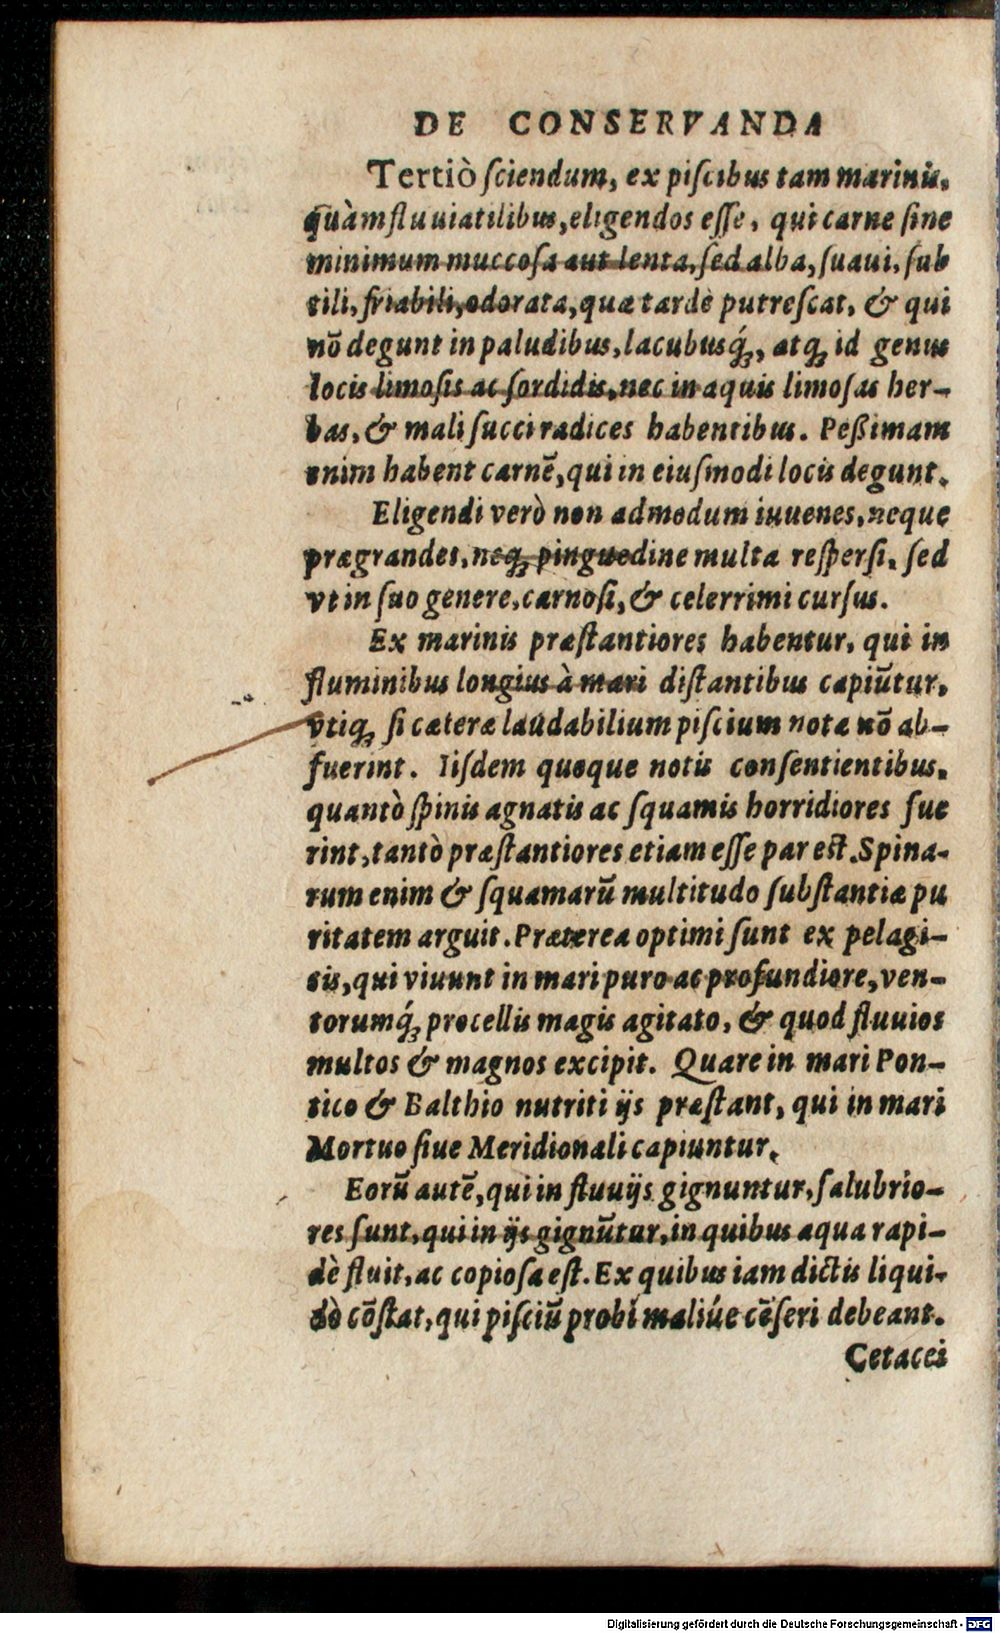 DE CONSERVANDA
Tertiò ſciendum, ex piſcibus tam marinis,
quàm fluuiatilibus, eligendos eſſe, qui carne ſine
minimum muccoſa aut lenta, ſed alba, ſuaui, ſub
tili, friabili, odorata, quæ tardè putreſcat, & qui
nō degunt in paludibus, lacubusq́ꝫ, atqꝫ id genus
locis limoſis ac ſordidis, nec in aquis limoſas her-
bas, & mali ſucci radices habentibus. Peßimam
enim habent carnē, qui in eiuſmodi locis degunt.
Eligendi verò non admodum iuuenes, neque
prægrandes, neqꝫ pinguedine multa reſperſi, ſed
vt in ſuo genere, carnoſi, & celerrimi curſus.
Ex marinis præſtantiores habentur, qui in
fluminibus longius à mari diſtantibus capiūtur,
vtiqꝫ ſi cæteræ laudabilium piſcium notæ nō ab-
fuerint. Iiſdem quoque notis conſentientibus,
quantò ſpinis agnatis ac ſquamis horridiores fue
rint, tantò præſtantiores etiam eſſe par eſt. Spina-
rum enim & ſquamarū multitudo ſubſtantiæ pu
ritatem arguit. Præterea optimi ſunt ex pelagi-
cis, qui viuunt in mari puro ac profundiore, ven-
torumq́ꝫ procellis magis agitato, & quod fluuios
multos & magnos excipit. Quare in mari Pon-
tico & Balthio nutriti ijs præſtant, qui in mari
Mortuo ſiue Meridionali capiuntur.
Eorū autē, qui in fluuijs gignuntur, ſalubrio-
res ſunt, qui in ijs gignūtur, in quibus aqua rapi-
dè fluit, ac copioſa eſt. Ex quibus iam dictis liqui-
dò cōſtat, qui piſciū probi maliúe cēſeri debeant.
Cetacei
Digitalisierung gefördert durch die Deutsche Forschungsgemeinschaft - DFG